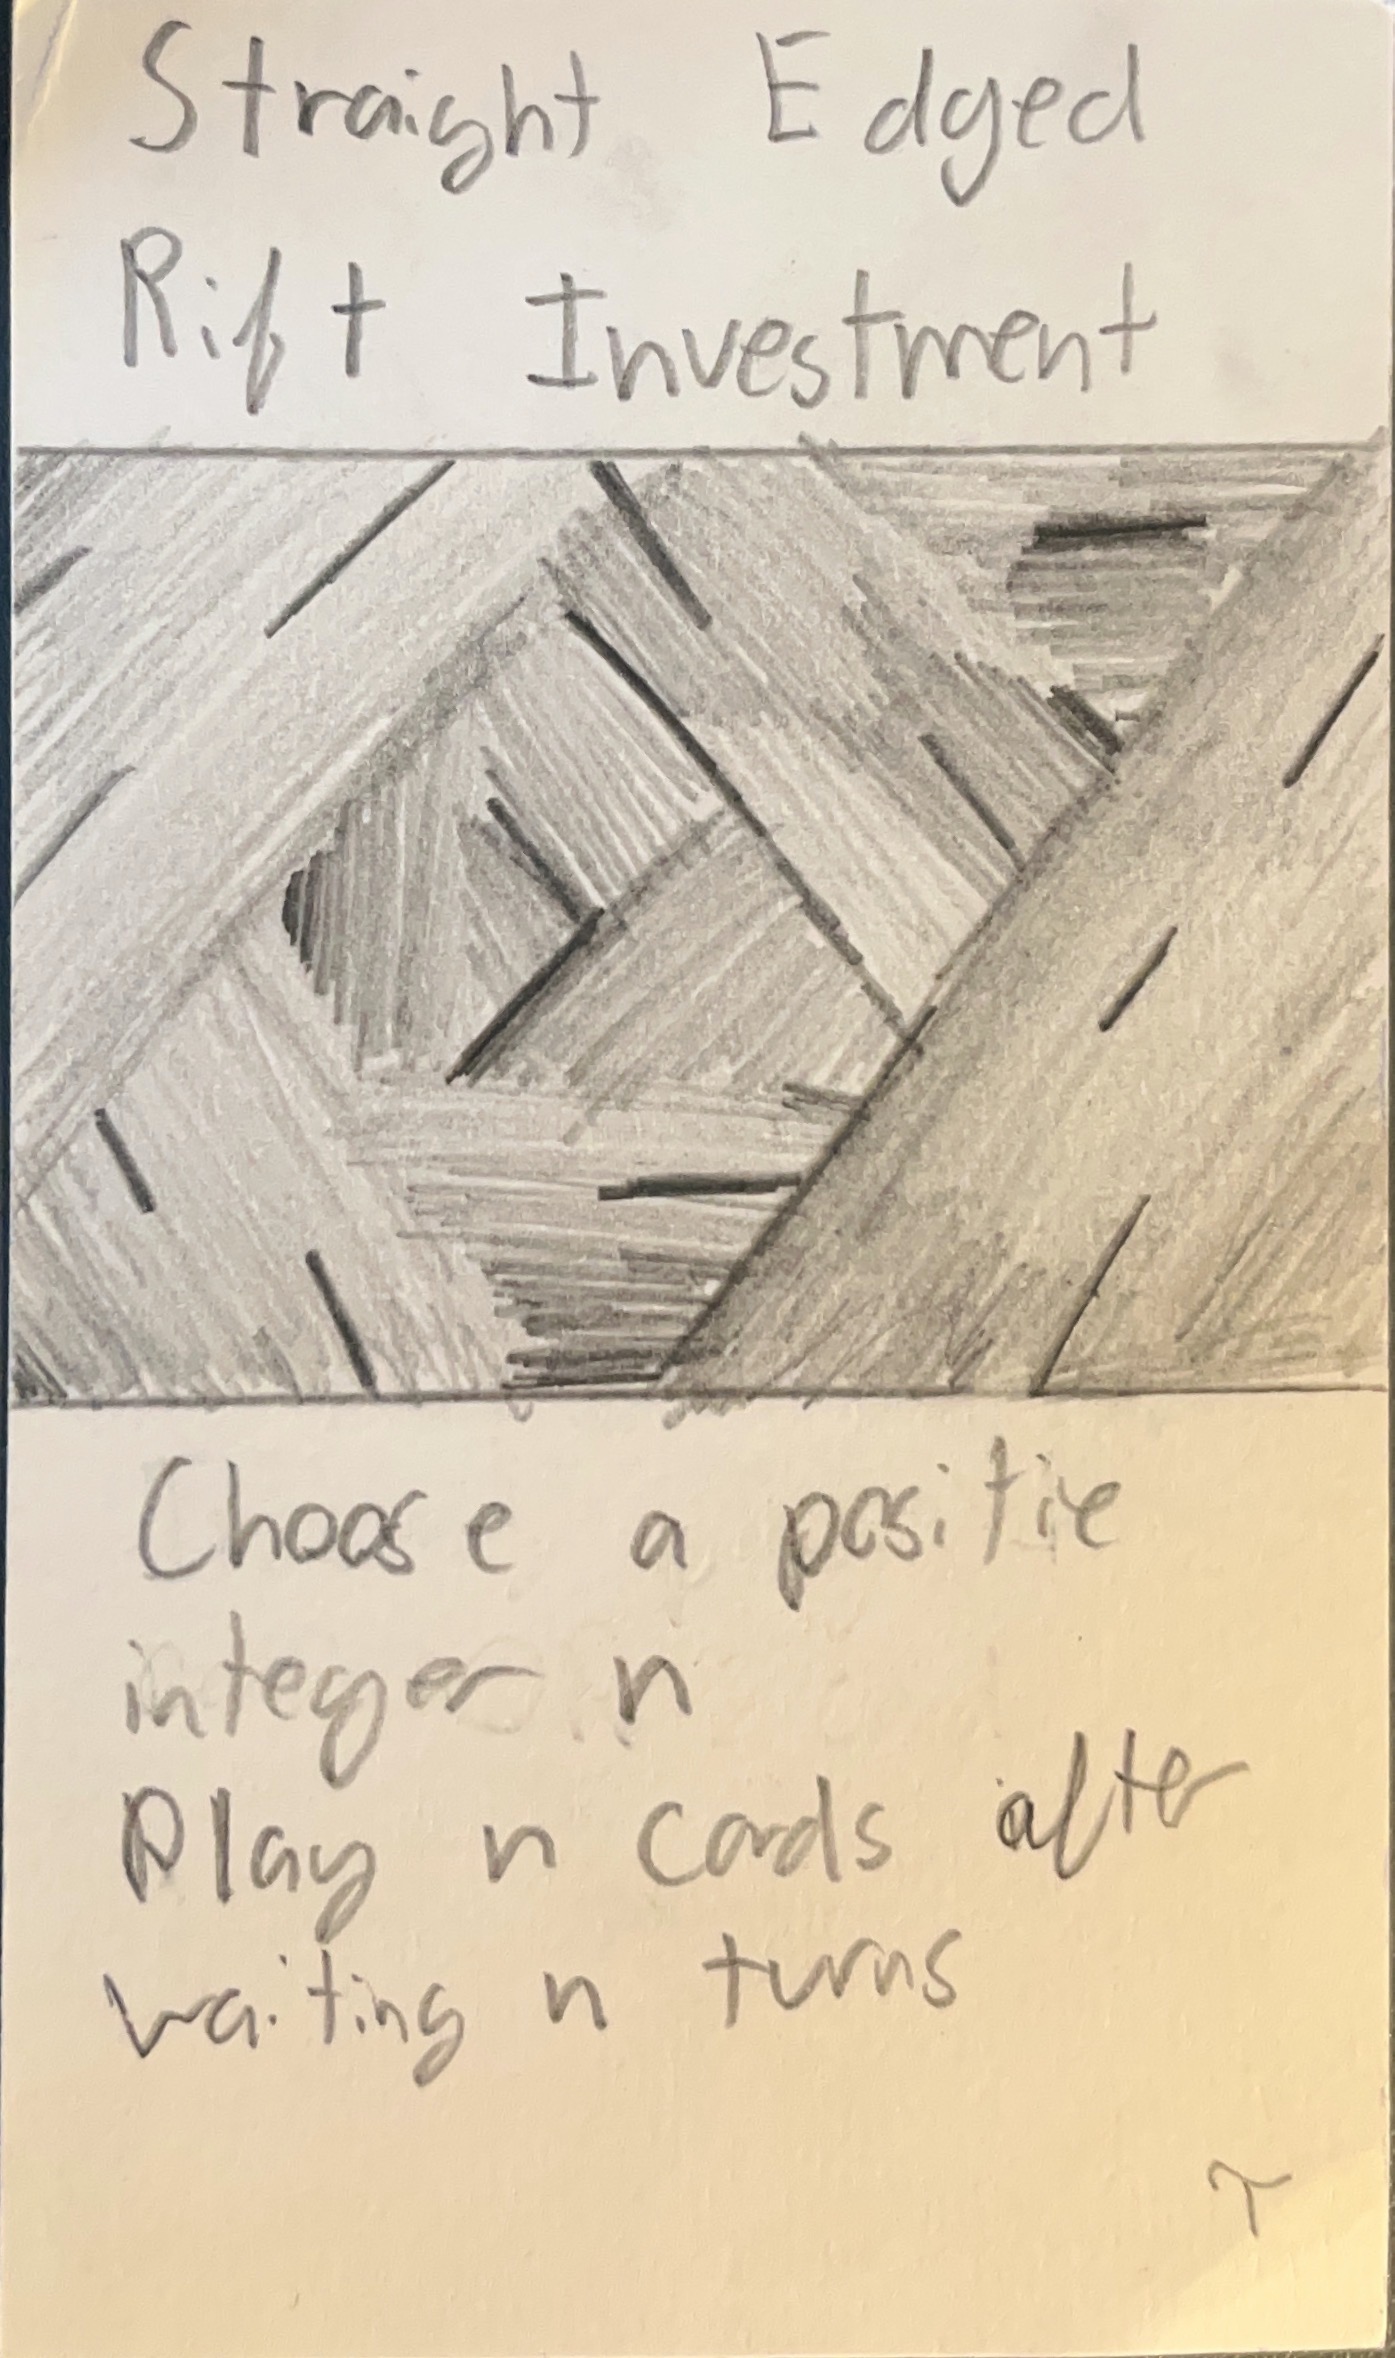 Straight Edged
Rift Investment
Choose a positie
integer n
Play n cards after
waiting n turns